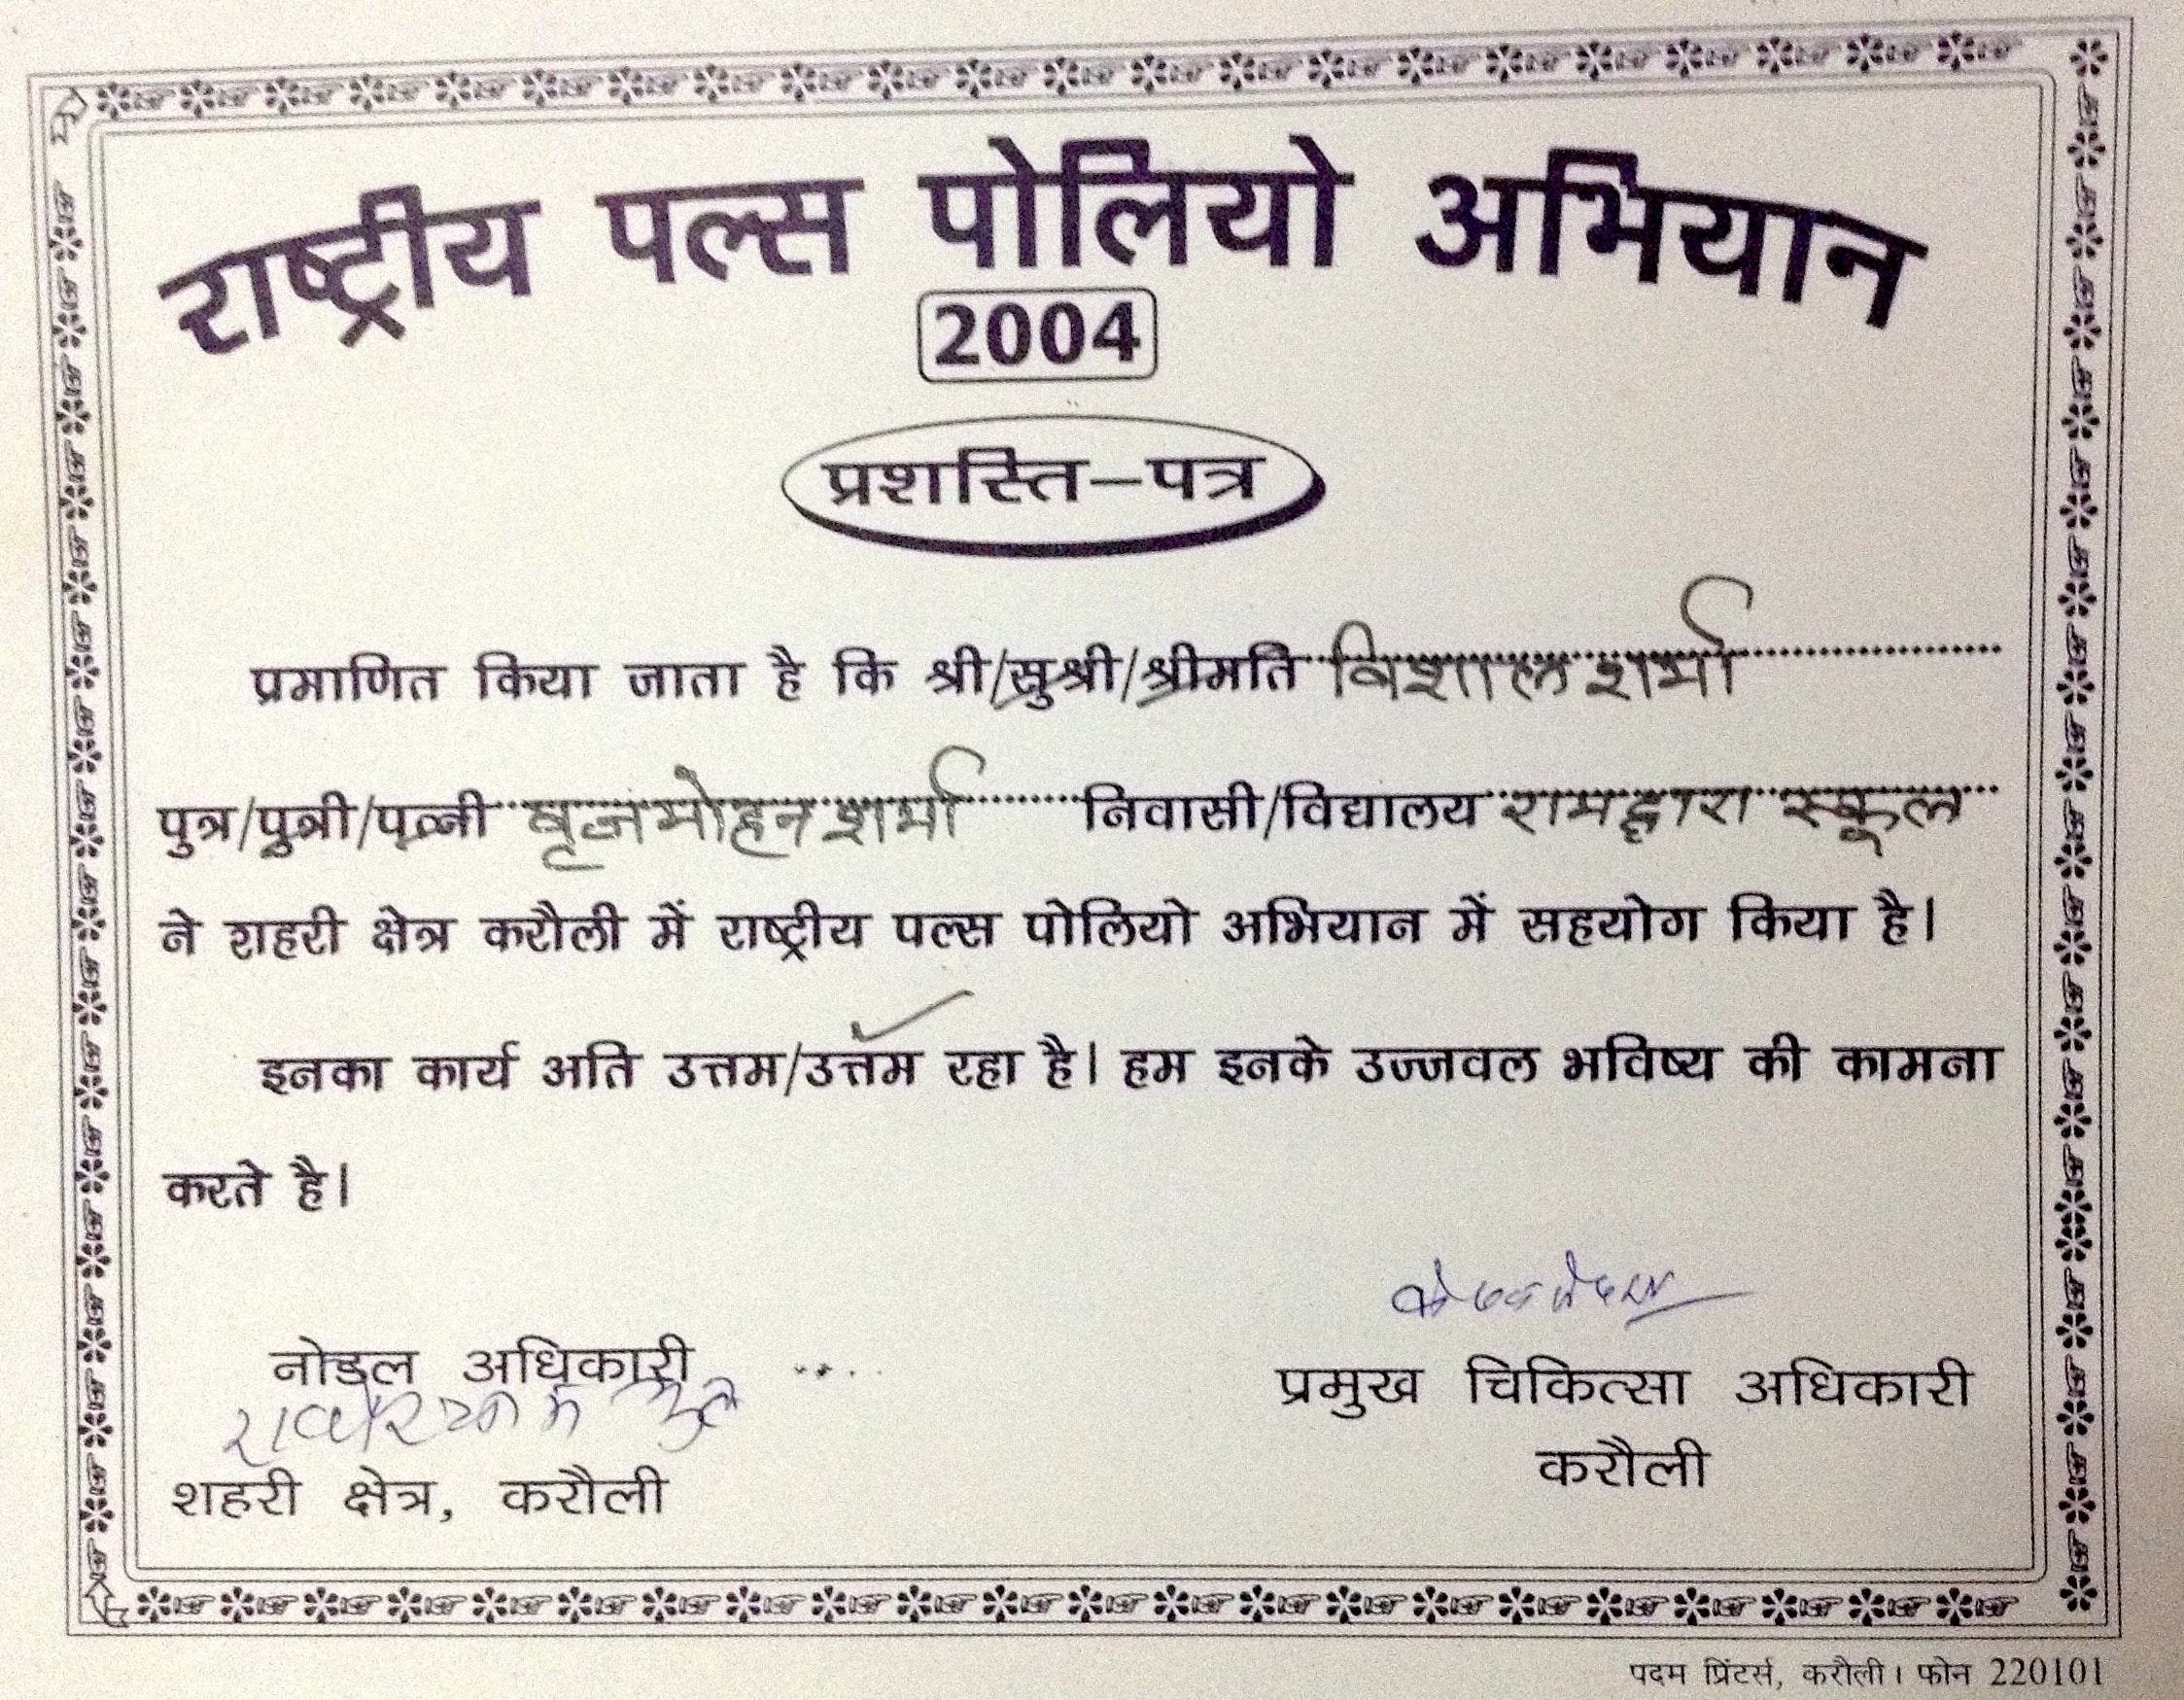 राष्ट्रीय पल्स पोलियो अभियान
2004
प्रशस्ति-पत्र
प्रमाणित किया जाता है कि श्री/सुश्री/श्रीमति विशाल शर्मा
पुत्र/पुत्री/पत्नी बृजमोहन शर्मा निवासी/विद्यालय रामद्वारा स्कूल
ने शहरी क्षेत्र करौली में राष्ट्रीय पल्स पोलियो अभियान में सहयोग किया है।
इनका कार्य अति उत्तम/उत्तम रहा है। हम इनके उज्जवल भविष्य की कामना
करते है।
नोडल अधिकारी
शहरी क्षेत्र, करौली
प्रमुख चिकित्सा अधिकारी
करौली
पदम प्रिंटर्स, करौली। फोन 220101